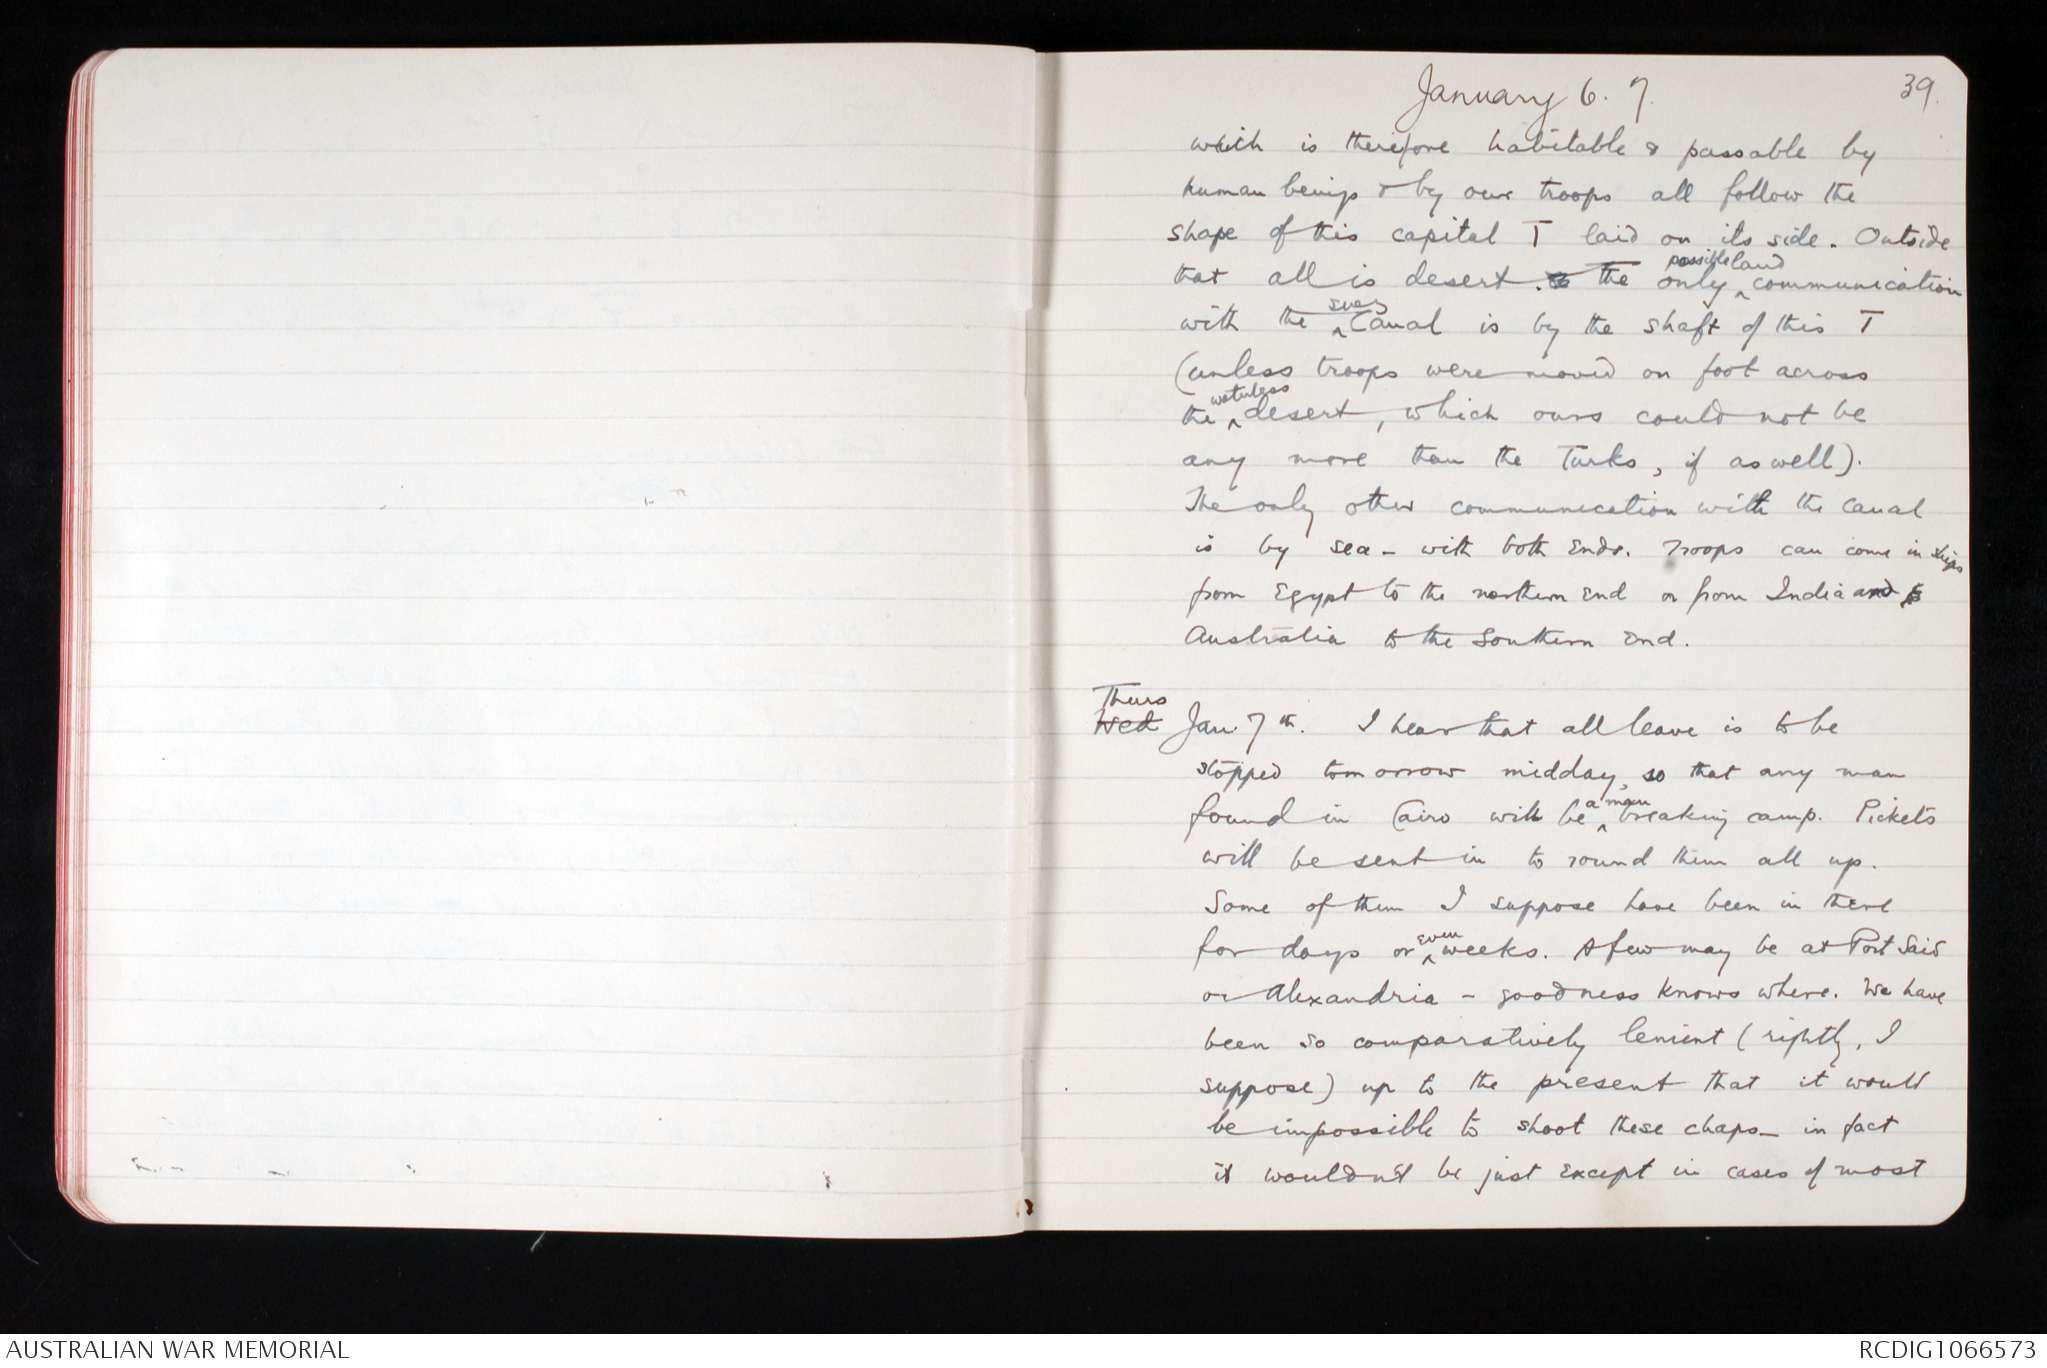 January 6. 7.
39.
which is therefore habitable & passable by
human beings & by our troops all follow the
shape of this capital T laid on its side. Outside
that all is desert. The only possible land communication
with the Suez Canal is by the shaft of this T
(unless troops were moved on foot across
the waterless desert, which ours could not be
any more than the Turks, if as well).
The only other communication with the Canal
is by sea - with both ends. Troops can come in ships
from Egypt to the northern end or from India and
Australia to the Southern end.
Thurs
Wed Jan 7th. I hear that all leave is to be
stopped tomorrow midday, so that any man
found in Cairo will be a man breaking camp. Pickets
will be sent in to round them all up.
Some of them I suppose have been in there
for days or even weeks. A few may be at Port Said
or Alexandria - goodness knows where. We have
been so comparatively lenient (rightly, I
suppose) up to the present that it would
be impossible to shoot these chaps - in fact
it wouldn't be just except in cases of most
AUSTRALIAN WAR MEMORIAL
RCDIG1066573